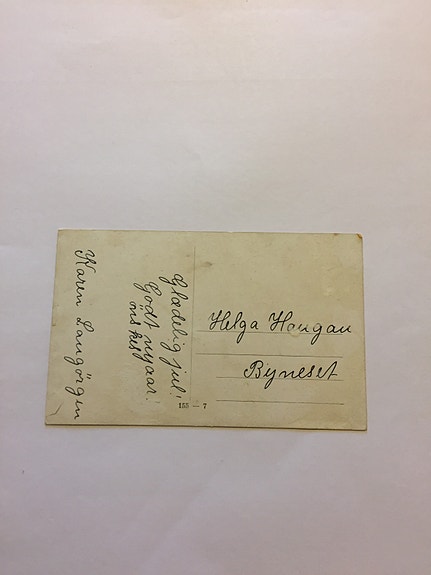 Glædelig jul!
Godt nyaar!
önskes
Karen Langörgen
Helga Hougan
Byneset
155 — 7